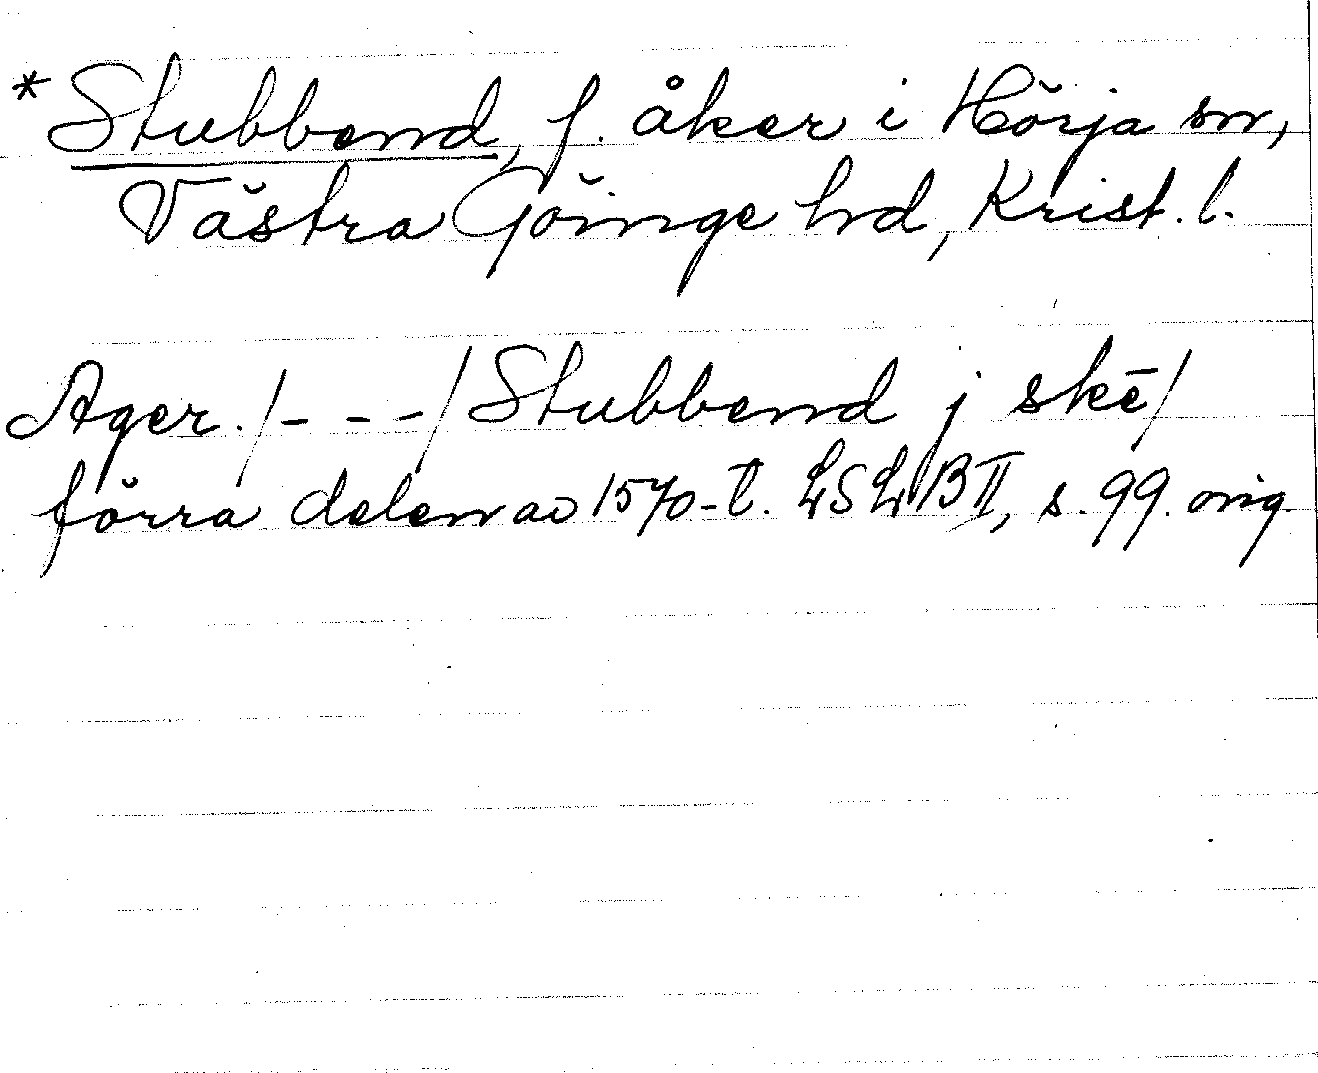 *Stubbend, f. åker i Hörja sn,
Västra Göinge hd, Krist. l.
Ager. /- - -/ Stubbend j skē/
förra delen av 1570-t. LSLB II, s. 99. orig.